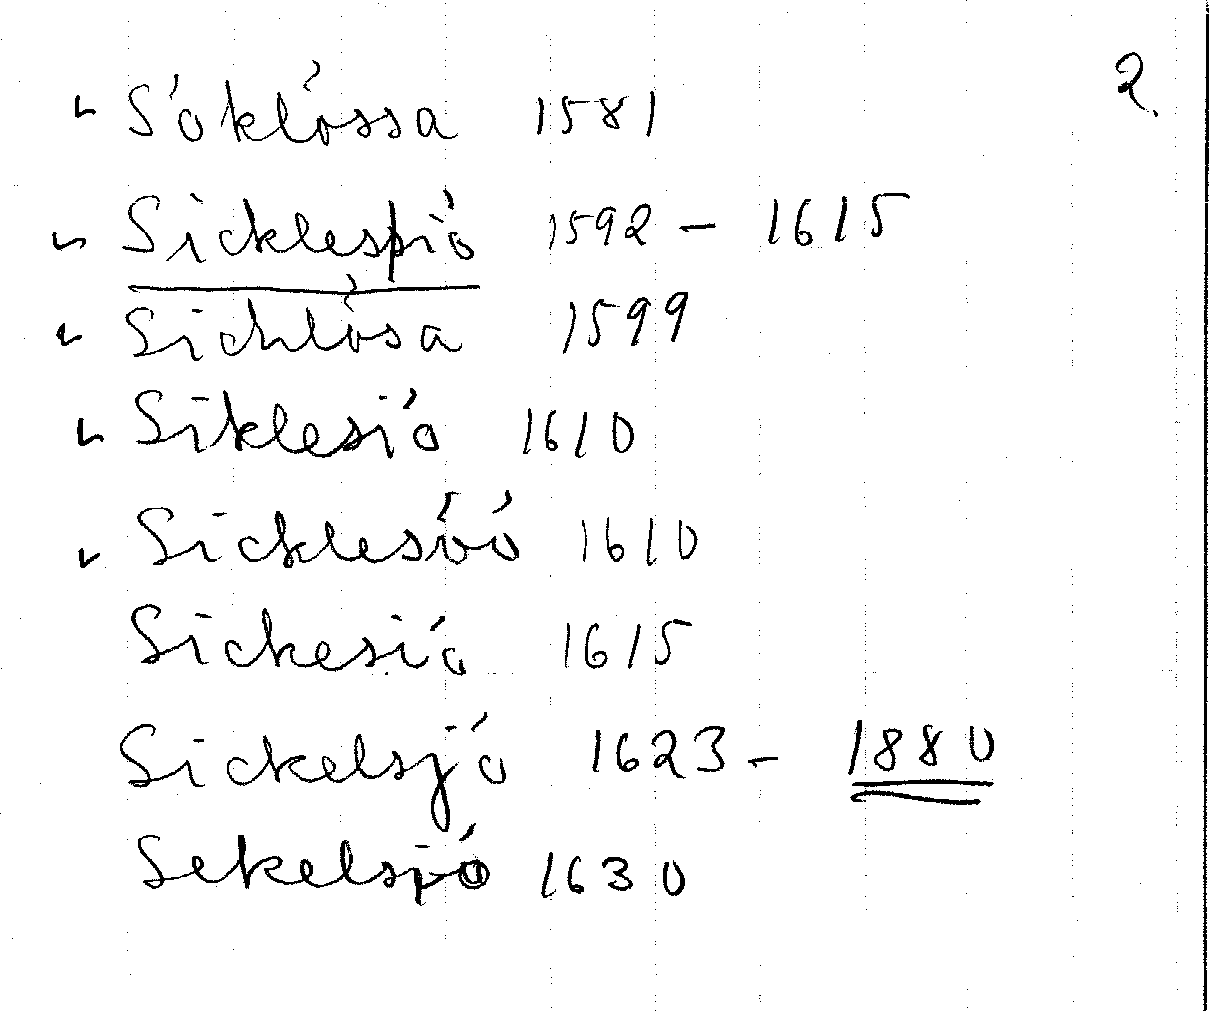 2.
Söklössa 1581
Sicklespiö 1592 - 1615
Sicklösa 1599
Siklesiö 1610
Sicklesöö 1610
Sickesiö 1615
Sickelsjö 1623 - 1880
Sekelsjö 1630